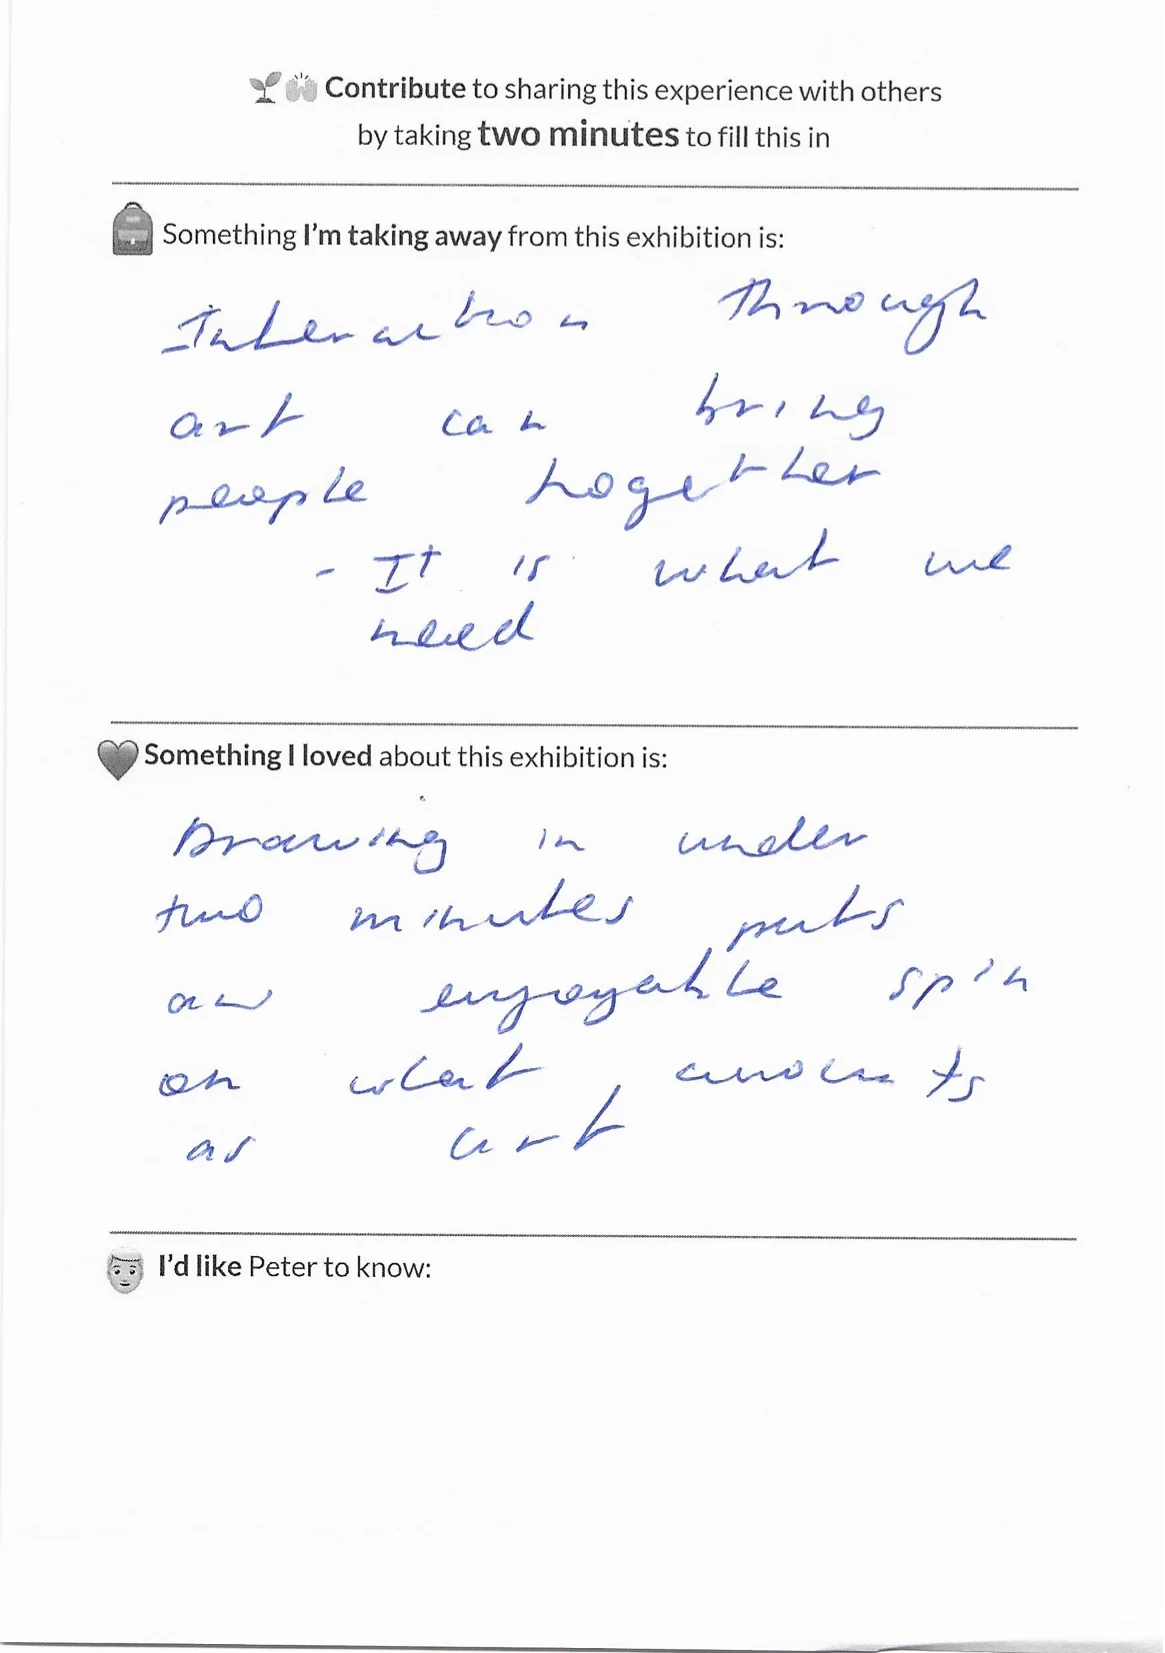 Contribute to sharing this experience with others
by taking two minutes to fill this in
Something I'm taking away from this exhibition is:
Interaction through
art can bring
people together
- It is what we
need
Something I loved about this exhibition is:
Drawing in under
two minutes puts
an enjoyable spin
on what amounts
as art
I'd like Peter to know: